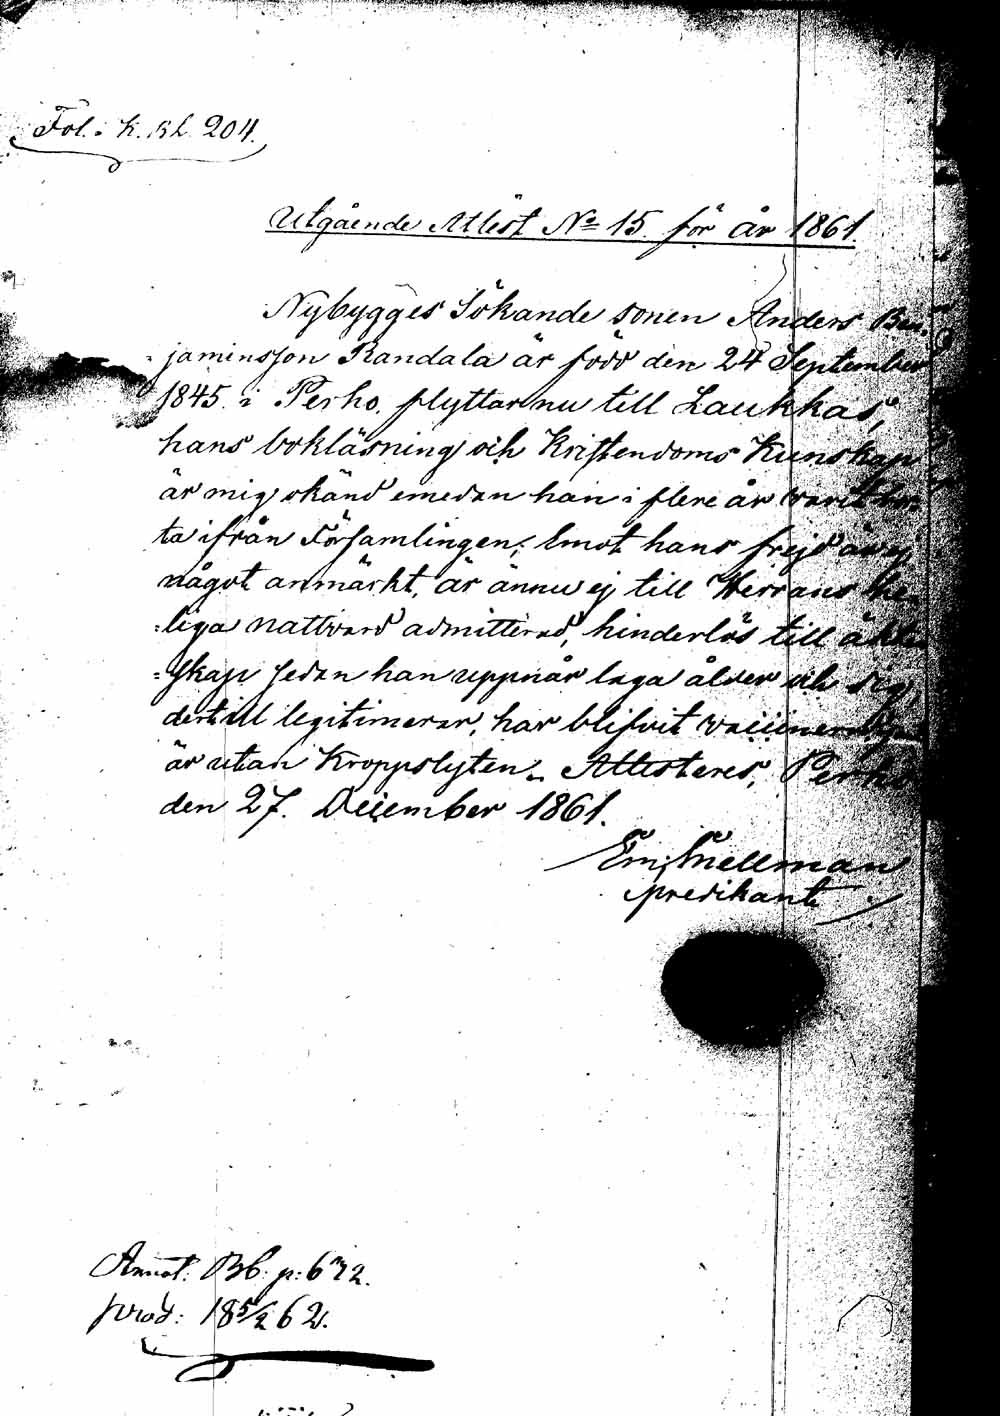 Fol. K. Bl. 204.
Utgående Attest No 15. för år 1861.
Nybygges Sökande sonen Anders Ben-
jaminsson Randala är född den 24 September
1845 i Perho, flyttar nu till Laukkas,
hans bokläsning och Kristendoms Kunskap
är mig okänd emedan han i flere år varit bor-
ta ifrån Församlingen; Emot hans frejd är ej
något anmärkt, är ännu ej till Herrans he-
liga nattvard admitterad, hinderlös till äkten-
skap sedan han uppnår laga ålder och sig
dertill legitimerar, har blifvit vaccinerad,
är utan Kroppslyten. Attesteres, Perho
den 27. December 1861.
Em. Snellman
predikant
Annot: Bb. p: 672.
prod: 18 5/2 62.